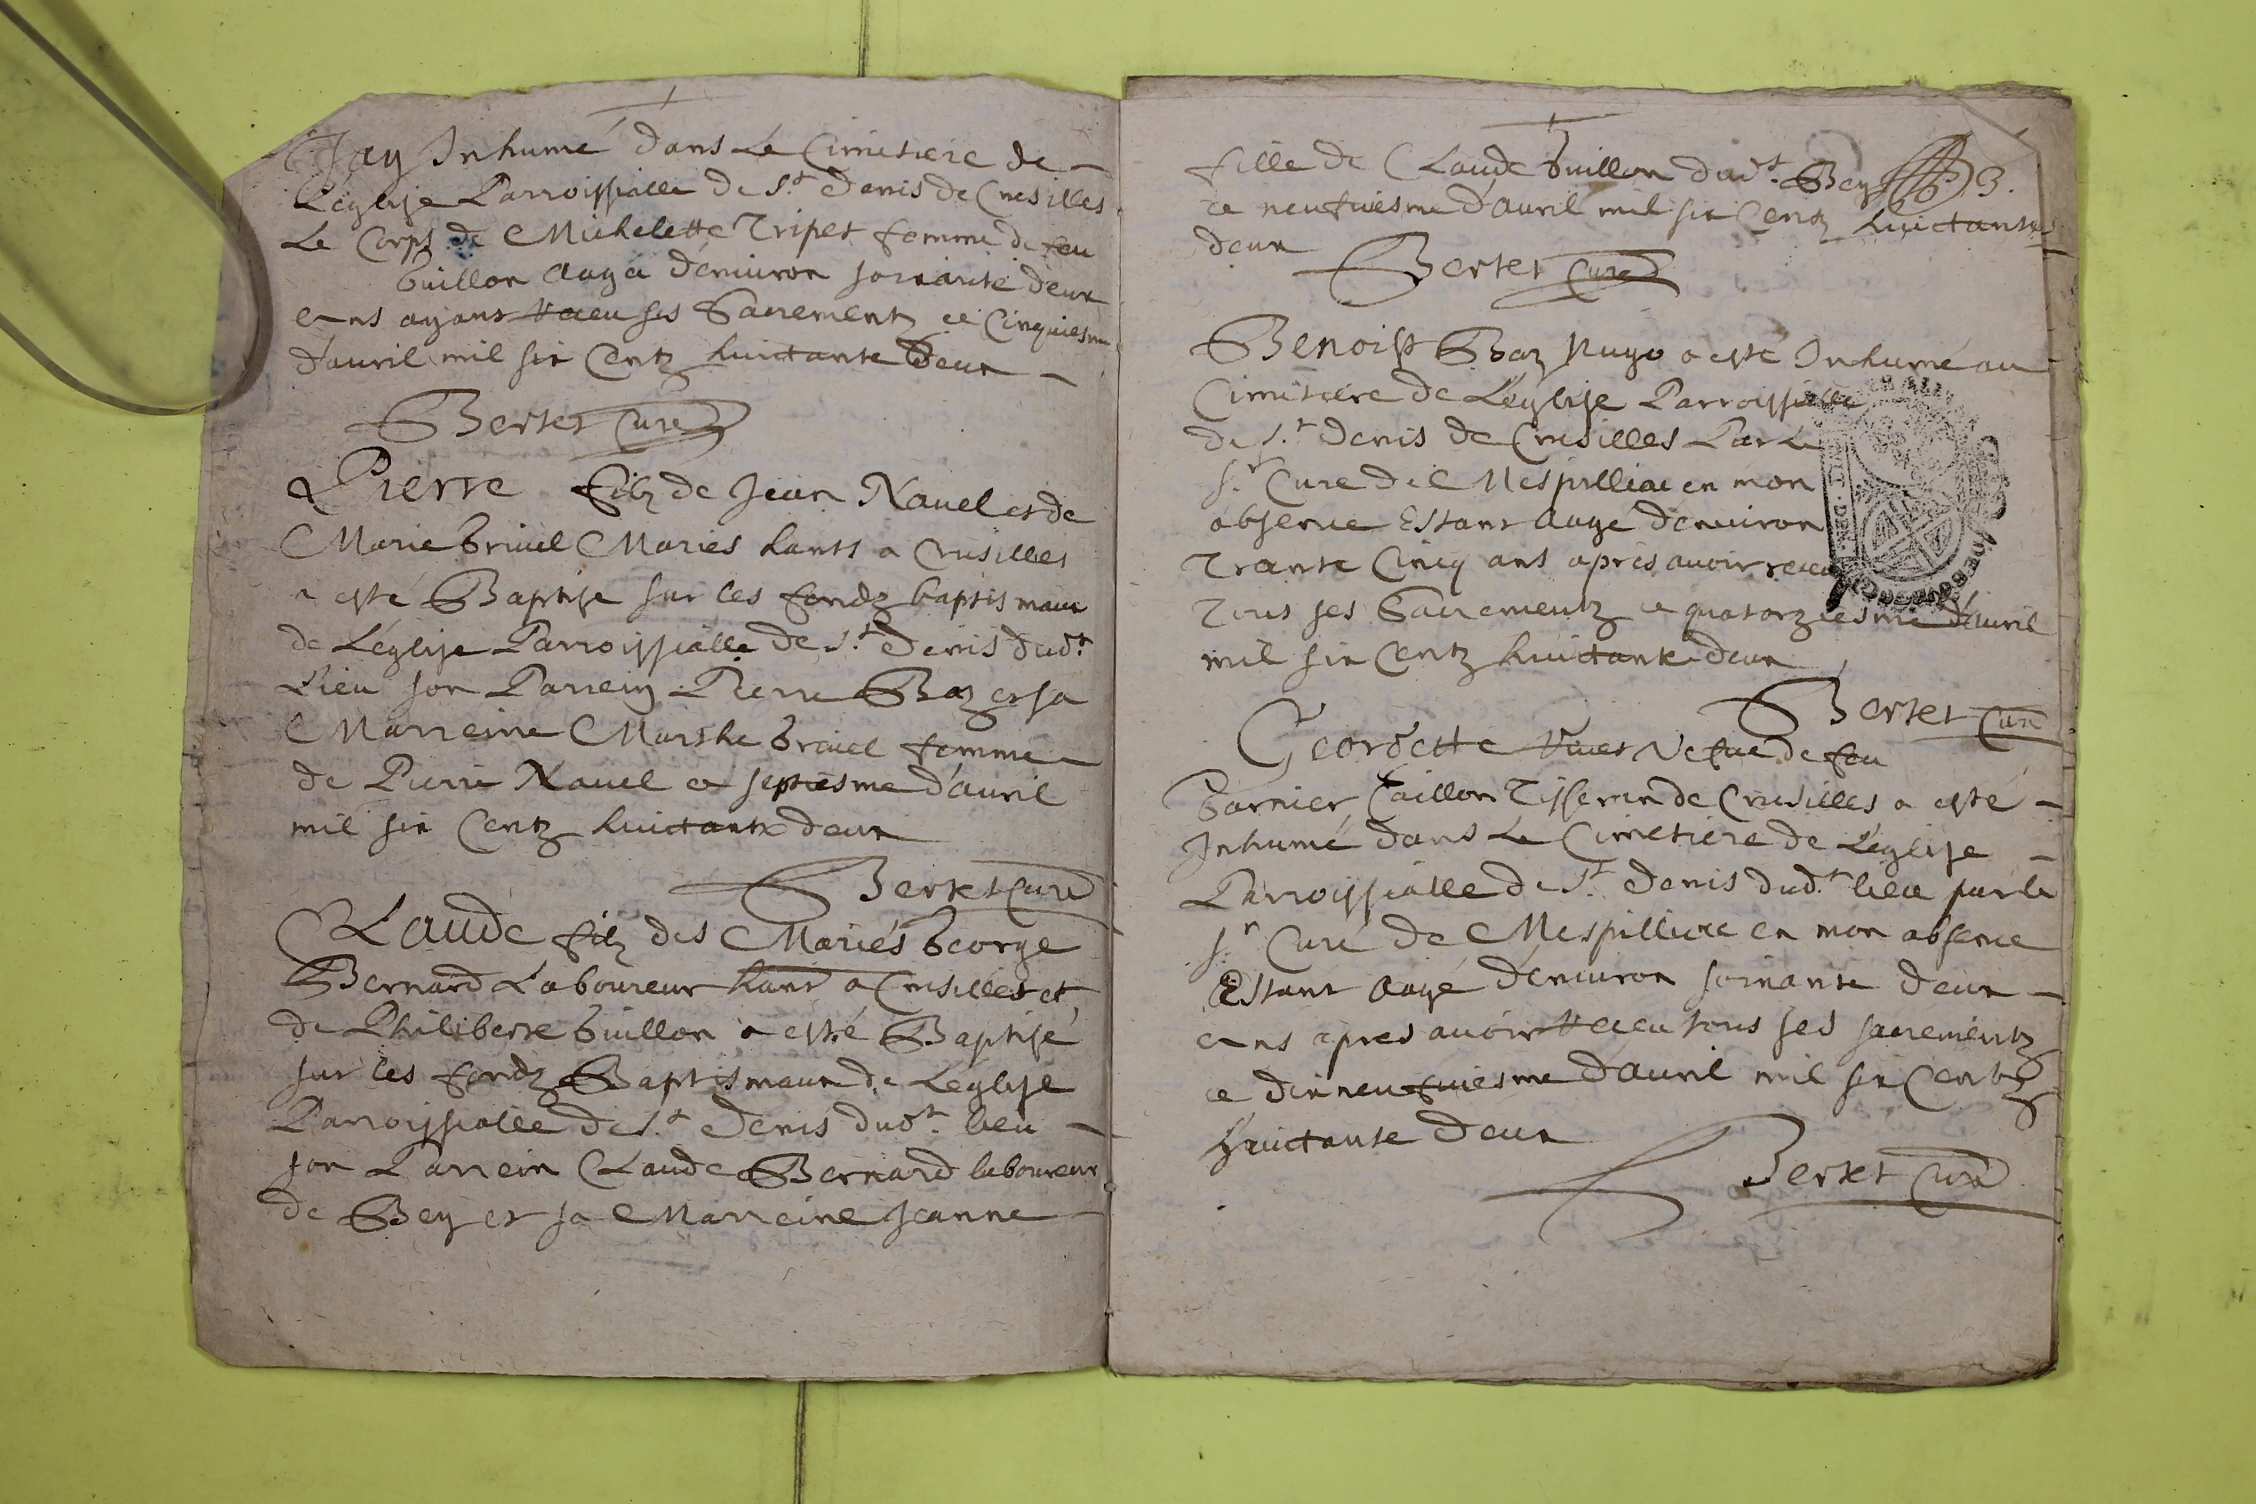 J'ay Inhumé dans Le Cimetiere de
L'eglise Parroissialle de S.t Denis de Crusilles
Le Corps de Michelette Tripet femme de feu
Guillon Aagé d'enuiron soixante deux
ans ayant receu ses Sacrementz ce Cinquiesme
d'auril mil six Centz huictante deux
Bertet Curé
Pierre filz de Jean Nauel et de
Marie Mariés hantz a Crusilles
a esté Baptise sur les fondz baptismaux
de L'eglise Parroissialle de S.t Denis dud.t
Lieu son Parrein Pierre Baz et sa
Marreine Marthe femme
de Pierre Nauel ce septiesme d'auril
mil six Centz huictante deux
Bertet Curé
Claude filz des Mariés George
Bernard Laboureur hant a Crusilles et
de Philiberte Guillon a esté Baptisé
sur les fondz Baptismaux de L'eglise
Parroissialle de S.t Denis dud.t lieu
son Parrein Claude Bernard laboureur
de Bey et sa Marreine Jeanne
fille de Claude Guillon dud.t Bey 3.
ce neufuiesme d'auril mil six Centz huictante
deux
Bertet Curé
Benoist Baz a esté Inhumé au
Cimetiere de L'eglise Parroissialle
de S.t Denis de Crusilles Par Le
S.r Curé de en mon
absence Estant Aagé d'enuiron
Trante Cincq ans apres auoir receu
Tous ses Sacrementz ce quatorziesme d'auril
mil six Centz huictante deux
Bertet Curé
Georgette Vefue de feu
Garnier Tisseran de Crusilles a esté
Inhumé dans Le Cimetiere de L'eglise
Parroissialle de S.t Denis dud.t lieu par le
S.r Curé de en mon absence
Estant Aagé d'enuiron soixante deux
ans apres auoir receu tous ses sacrementz
ce dixneufuiesme d'auril mil six Centz
huictante deux
Bertet Curé